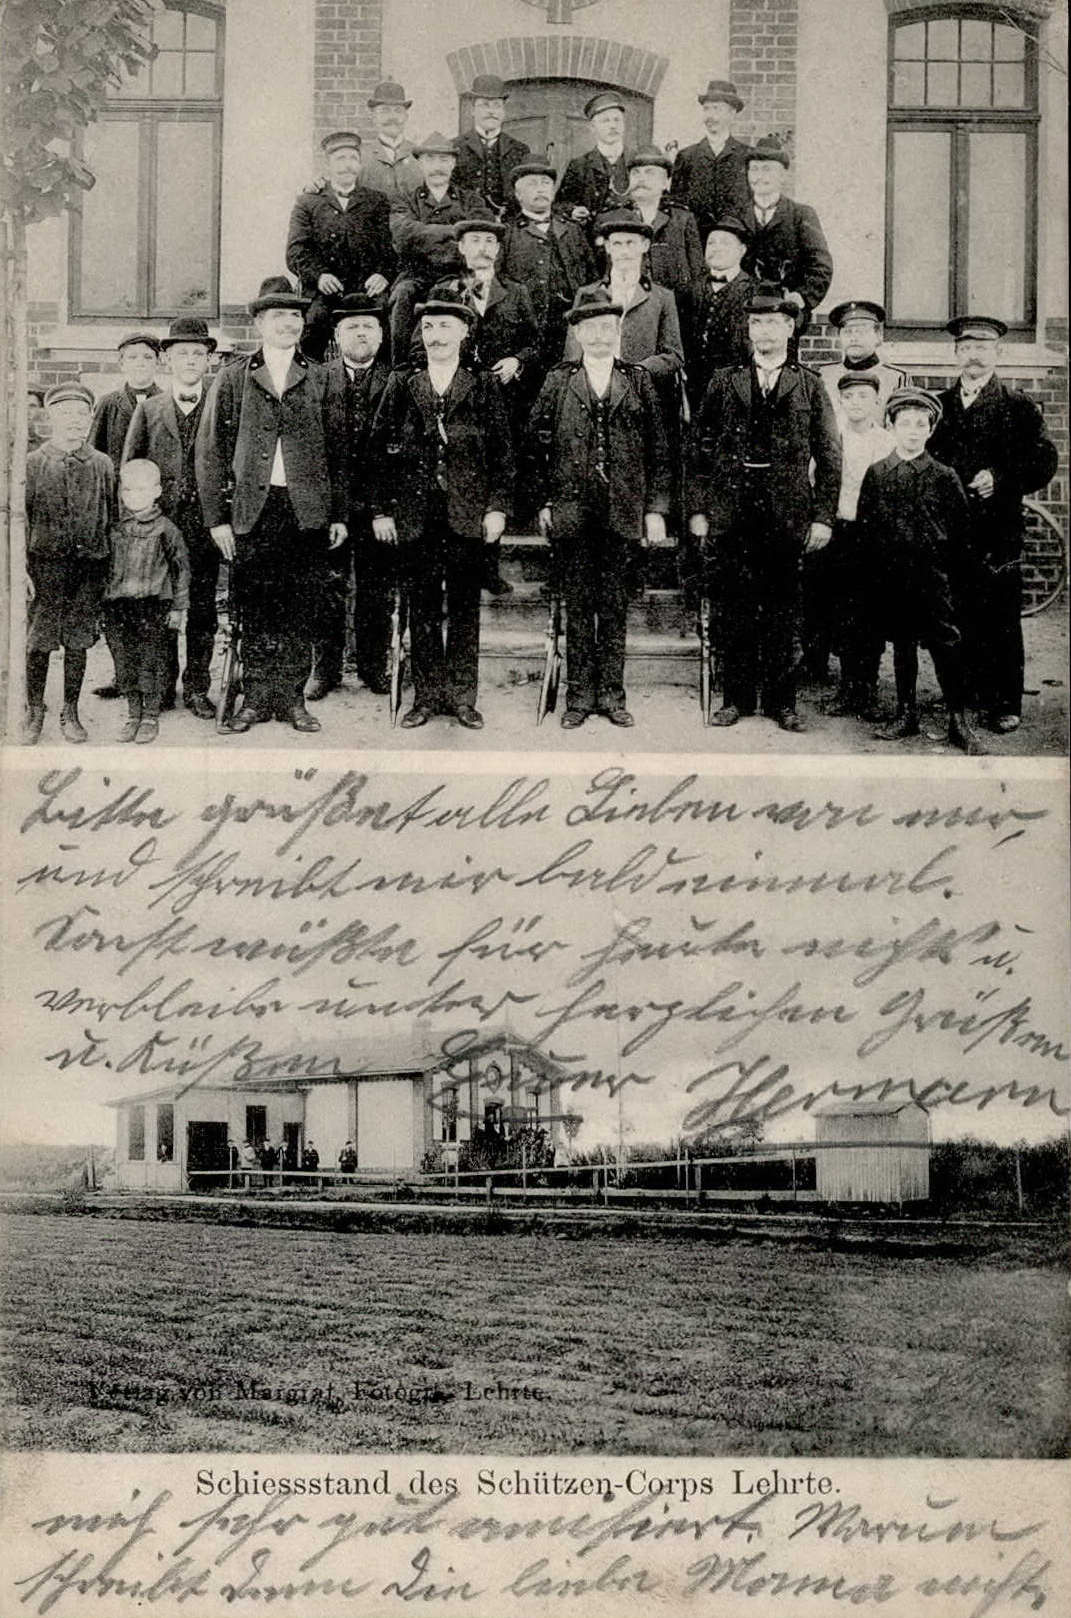 Bitte grüßet alle Lieben von mir,
und schreibt mir bald einmal.
Sonst wüßte für heute nichts u.
verbleibe unter herzlichen Grüßen
u. Küßen Euer Hermann
Verlag von Margraf, Fotogr., Lehrte.
Schiessstand des Schützen-Corps Lehrte.
mich sehr gut amüsiert. Warum
schreibt denn die liebe Mama nicht.